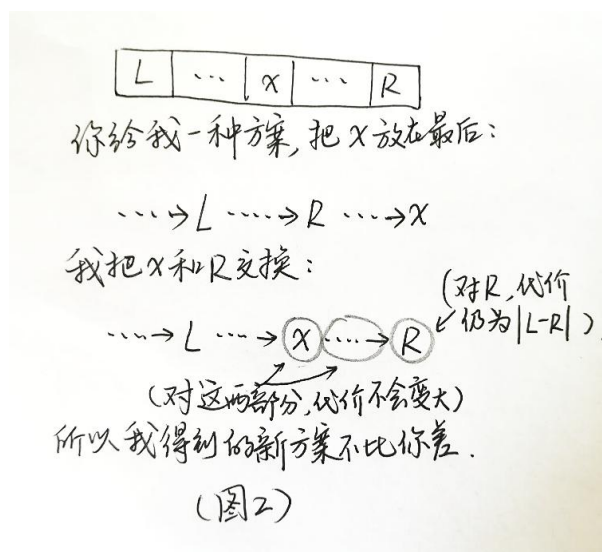 L ... x ... R
你给我一种方案，把x放在最后：
....→L.....→R....→x
我把x和R交换：
(对R，代价
仍为|L-R|)
....→L....→x....→R
(对这两部分，代价不会变大)
所以我得到的新方案不比你差.
(图2)